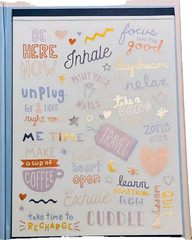 BE
HERE
NOW
Inhale
focus
on the
good
daydream
relax
unplug
for 1 hour
right now
PAINT YOUR
NAILS
take a
BREAK
ME TIME
MAKE
a cup of
COFFEE
TRAVEL
zone
OFF
heart
open
learn
SOMETHING
Exhale
take time to
RECHARGE
CUDDLE